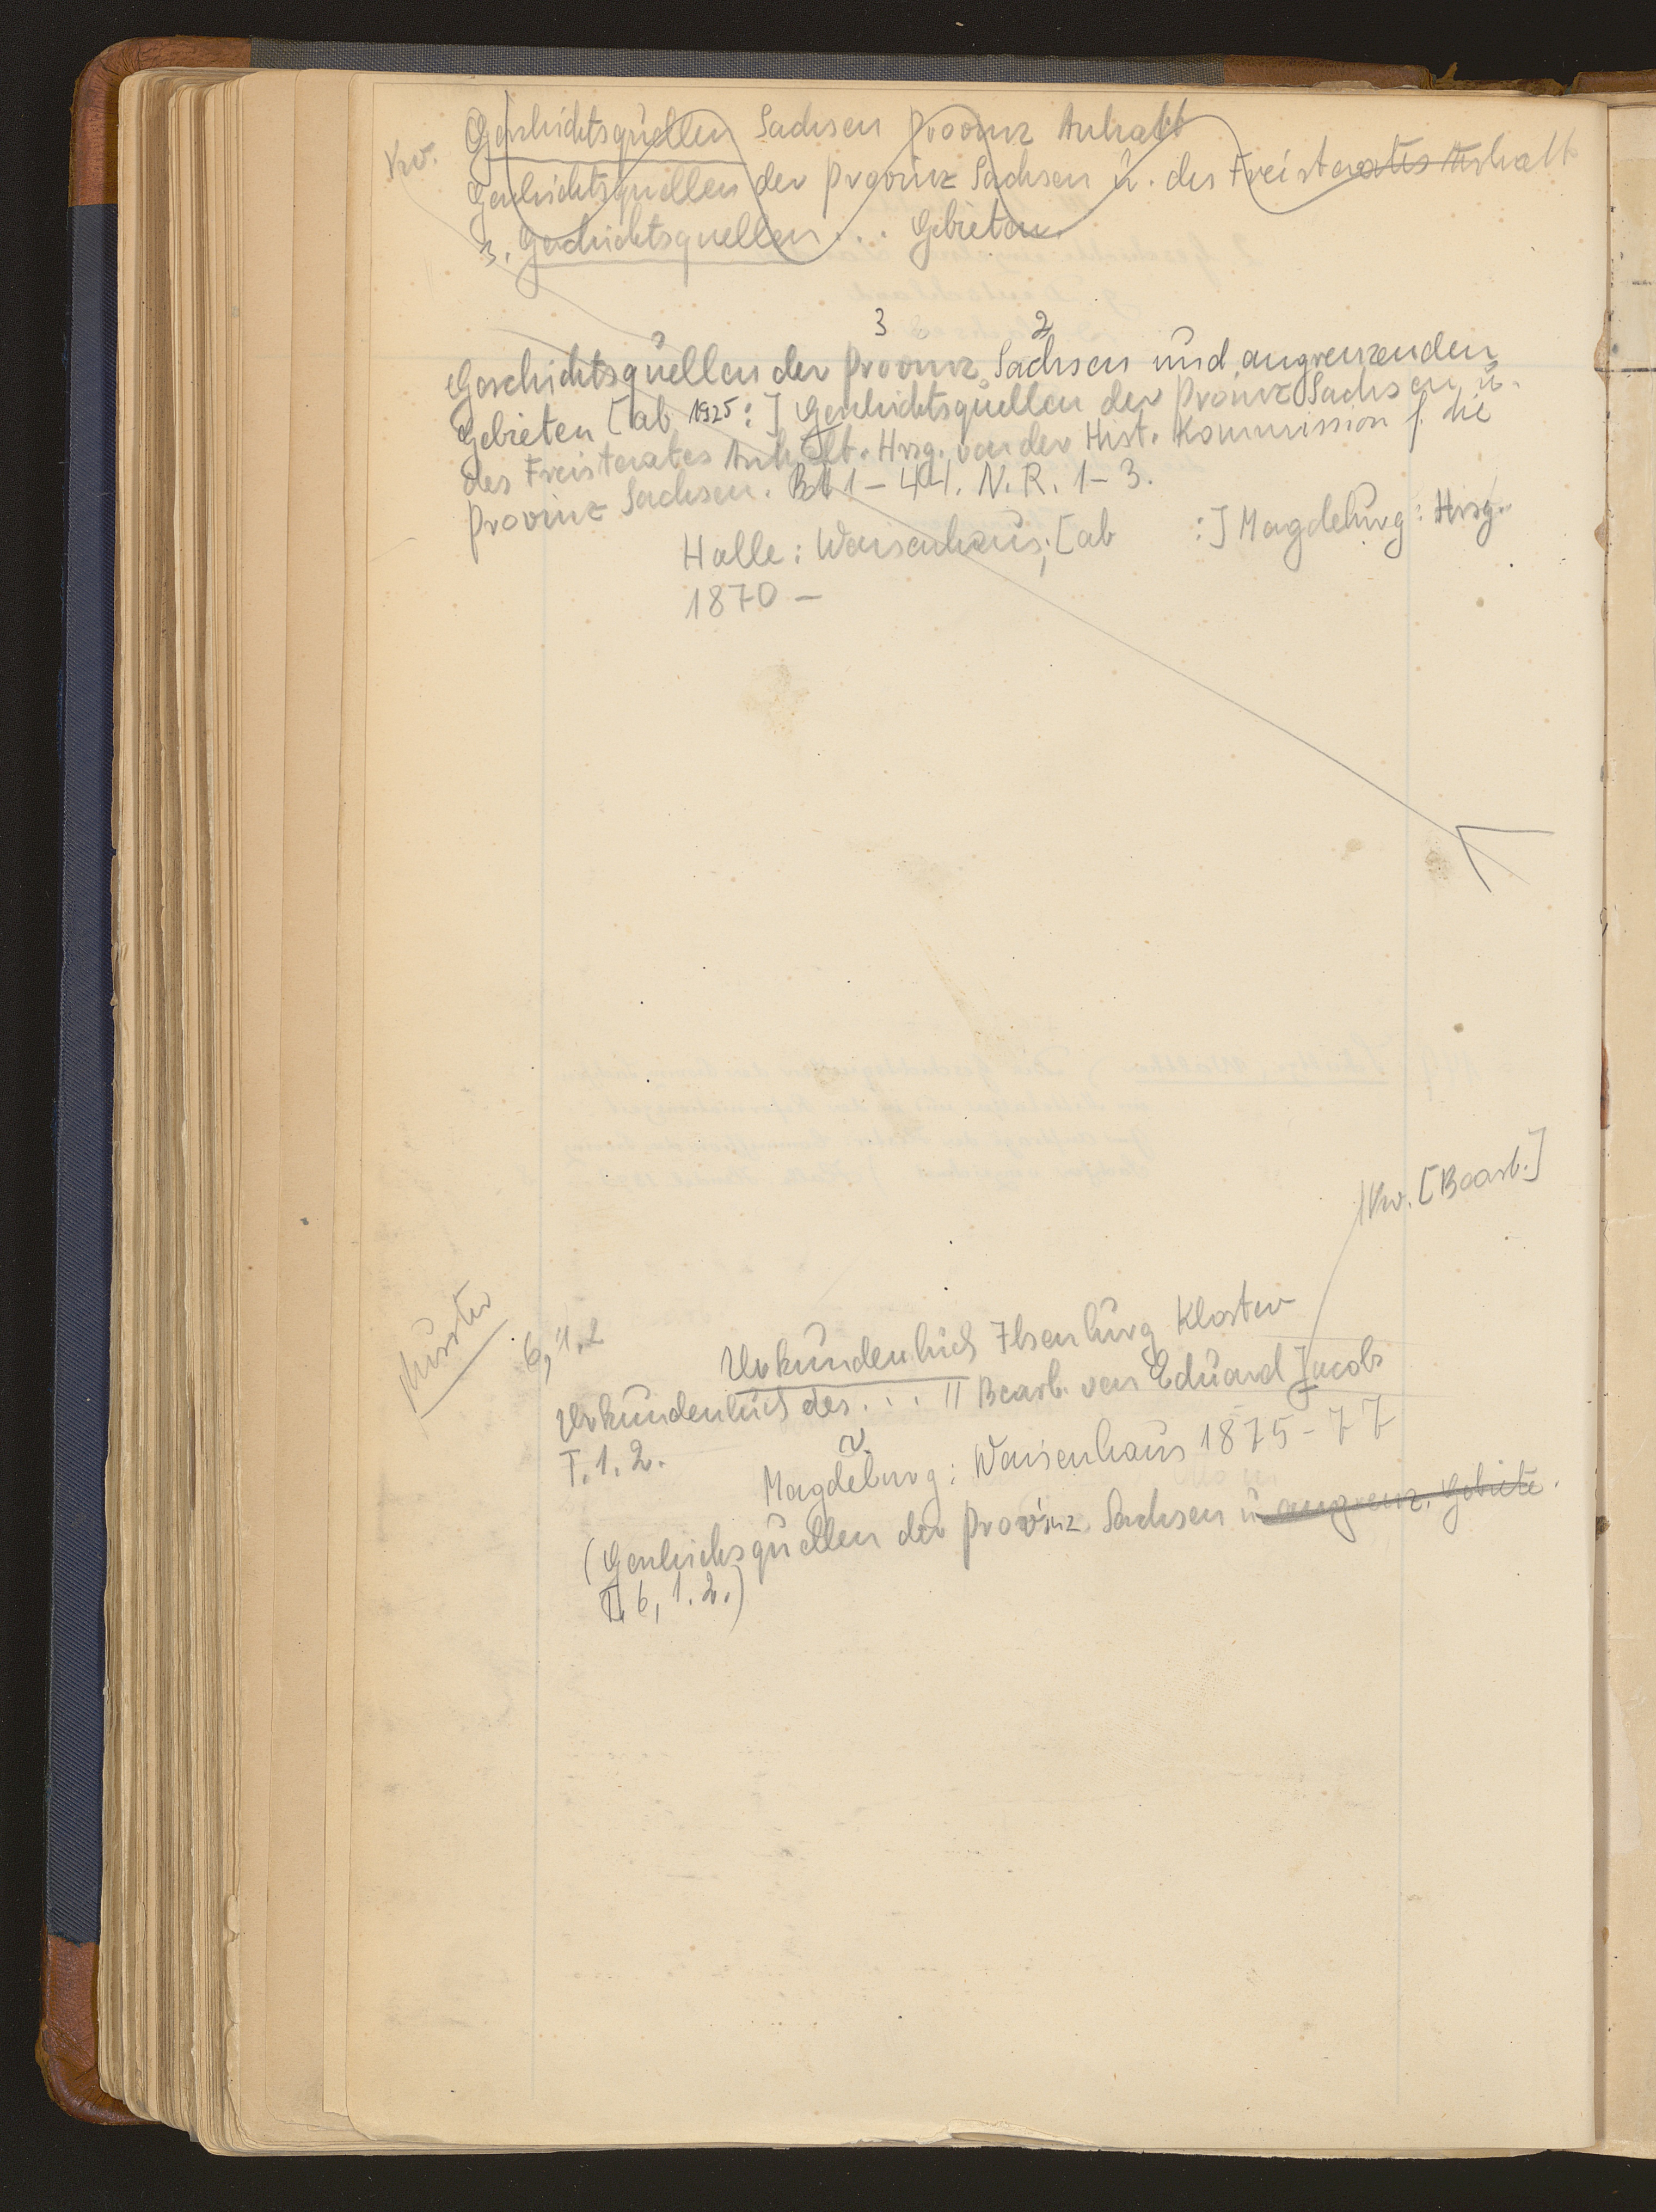 Vw.
Geschichtsquellen Sachsen Provinz Anhalt
Geschichtsquellen der Provinz Sachsen u. des Freistaates Anhalt
3. Geschichtsquellen ... Gebieten.
3 2
Geschichtsquellen der Provinz Sachsen und angrenzenden
Gebieten [ab 1925:] Geschichtsquellen der Provinz Sachsen u.
des Freistaates Anhalt. Hrsg. von der Hist. Kommission f. die
Provinz Sachsen. Bd 1-44. N.R. 1-3.
Halle: Waisenhaus; [ab :] Magdeburg: Hrsg.
1870 –
Vw. [Bearb.]
Muster
6, 1.2
Urkundenbuch Ilsenburg Kloster
Urkundenbuch des ... // Bearb. von Eduard Jacobs
T. 1. 2.
Magdeburg: Waisenhaus 1875-77
(Geschichsquellen der Provinz Sachsen u angrenz. Gebiete.
6, 1. 2.)